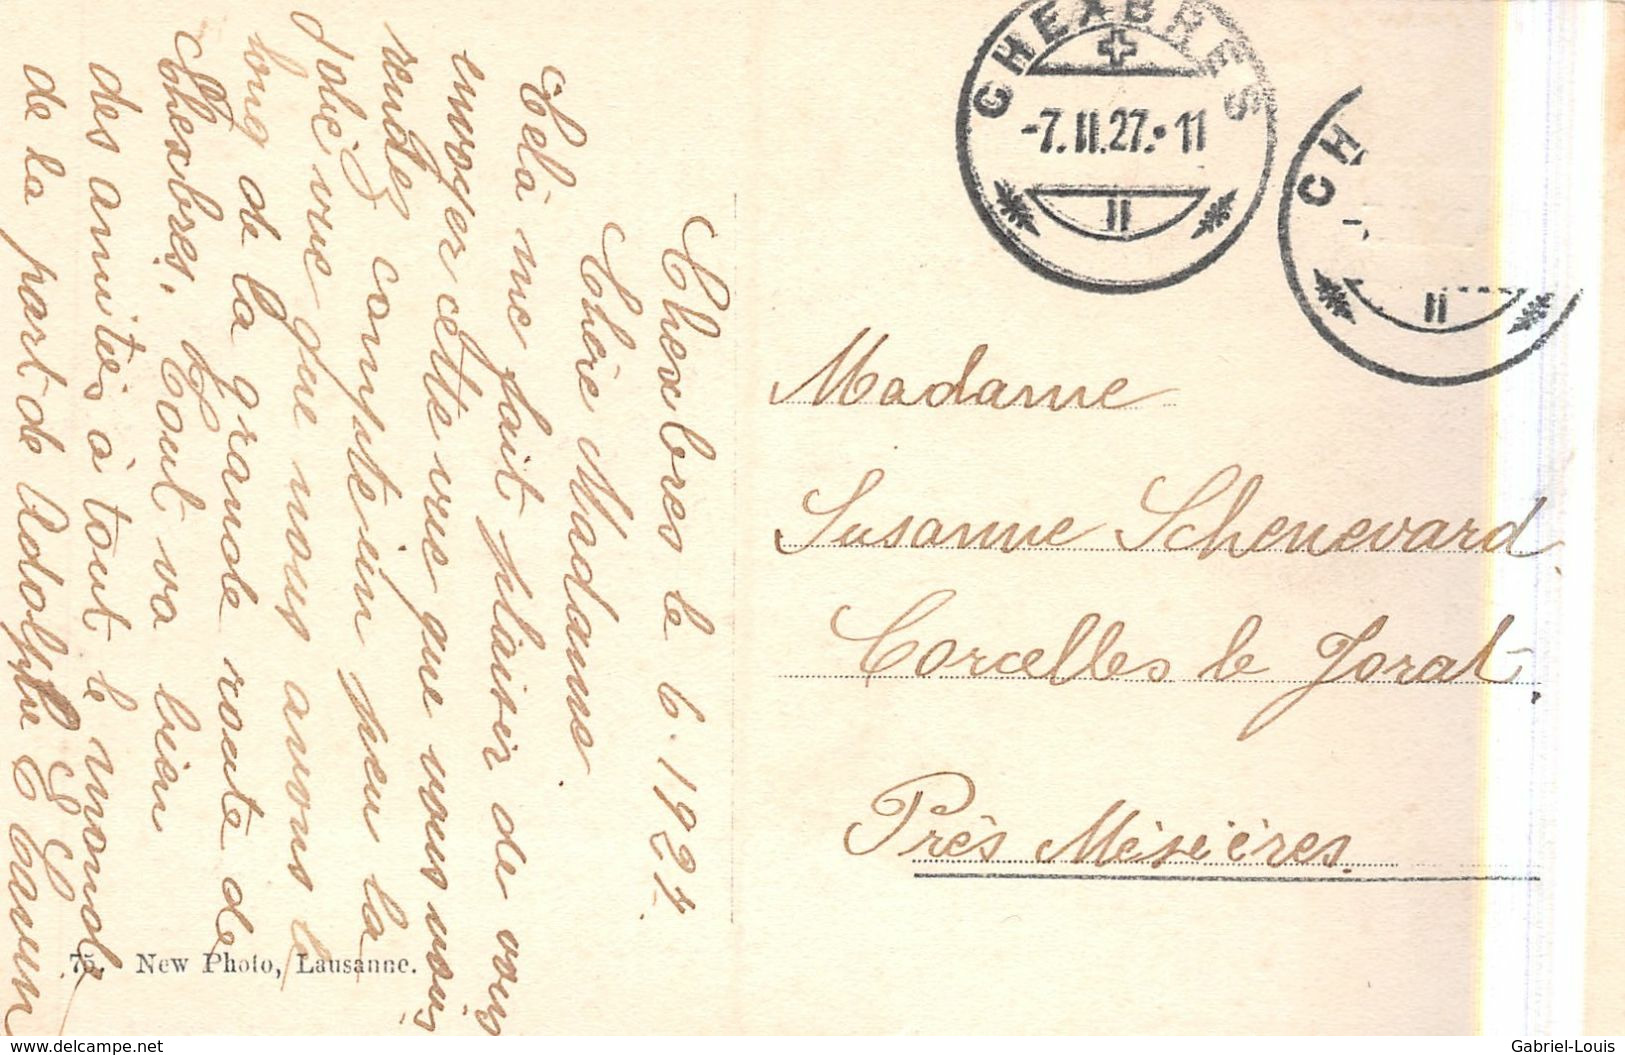 CHEXBRES
-7.II.27.-11
II
CH
II
Chexbres le 6. 1927
Chère Madame
Celà me fait plaisir de vous
envoyer cette vue que vous vous
rendez compte un peu la
jolie vue que nous avons le
long de la grande route de
Chexbres. Tout va bien
des amitiés à tout le monde
de la part de Adolphe
Madame
Susanne Schenevard
Corcelles le Jorat
Près Mésières
75. New Photo, Lausanne.
www.delcampe.net
Gabriel-Louis